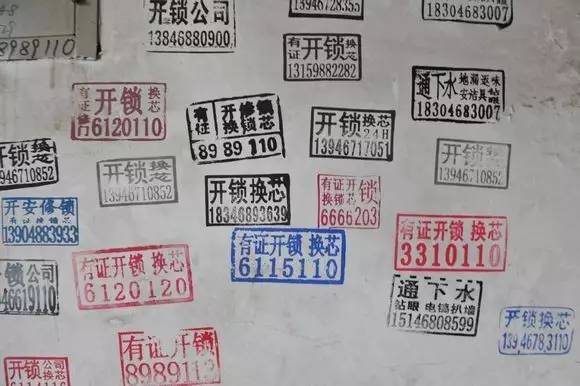 8989110
开锁公司
13846880900
13946728355
18304683007
有证开锁换芯
13159882282
通下水
地漏返味
安洁具钻眼
18304683007
有证开锁换芯
6120110
有证
开修锁
换锁芯
8989110
开锁换芯
24H
13946717051
开锁换芯
13946710852
开锁换芯
13946710852
开锁换芯
13946710852
开锁换芯
18346893639
有证开锁
换锁芯
6666203
开安修锁
有证换锁芯
13904883933
有证开锁 换芯
6120120
有证开锁 换芯
6115110
有证开锁 换芯
3310110
锁公司
46619110
通下水
钻眼 电镐扒墙
15146808599
开锁换芯
开锁公司换芯
有证开锁